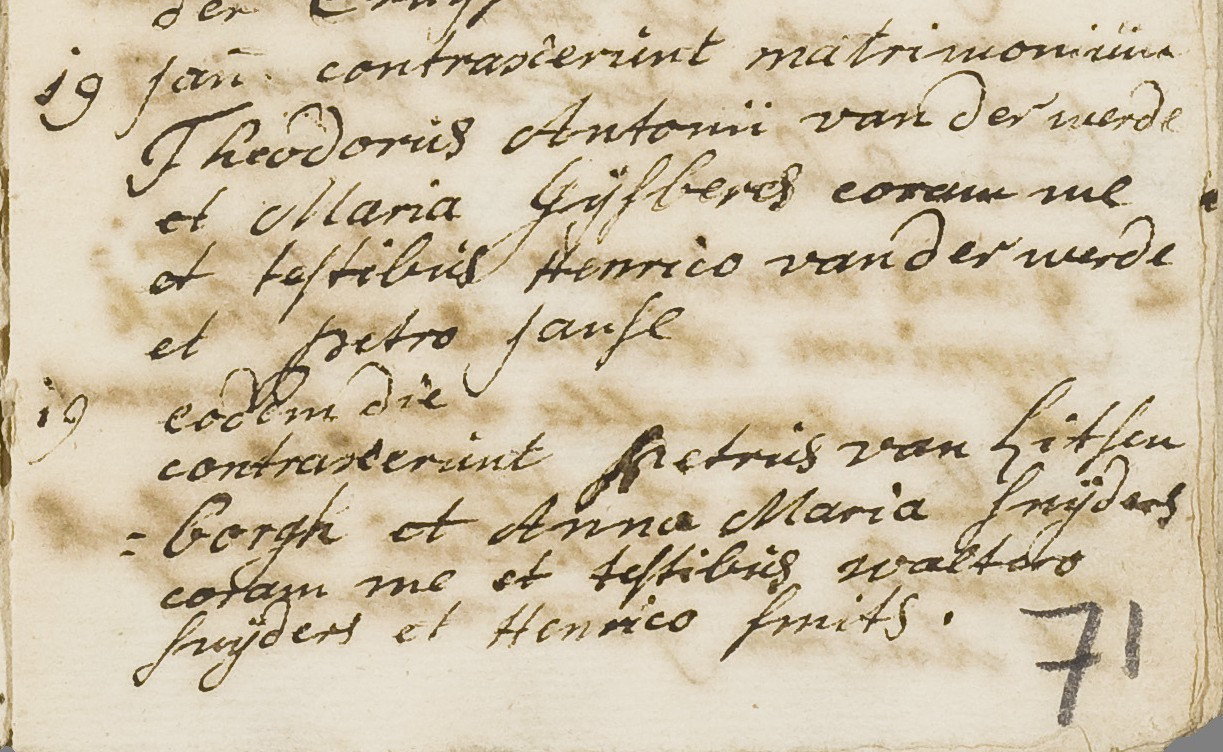 der Cruys
19 Jan. contraxerunt matrimonium
Theodorus Antonii van der werde
et Maria Gijsberts coram me
et testibus Henrico van der werde
et Petro Janse
19 eodem die
contraxerunt Petrus van Litsen
=borgh et Anna Maria Snÿders
coram me et testibus waltero
Snÿders et Henrico Smits.
71